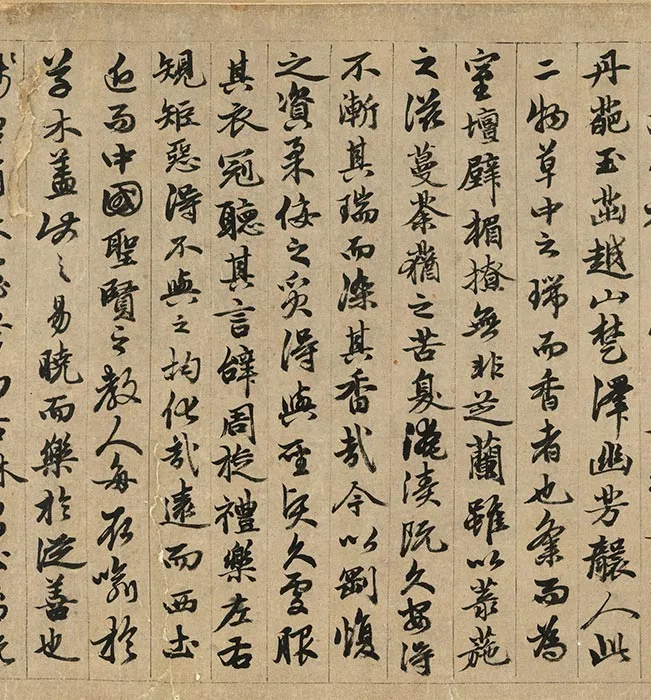 丹葩玉茁越山楚澤幽芳襲人此
二物草中之瑞而香者也彙而為
室壇壁楣橑無非芝蘭雖以葹
之滋蔓荼蕕之苦臭淹漬既久安得
不漸其瑞而染其香哉今以剛愎
之資柔佞之質得與聖賢久處服
其衣冠聽其言辭周旋禮樂左右
規矩惡得不與之均化哉遠而西土
近而中國聖賢之教人每取喻於
草木蓋此之易曉而樂於從善也